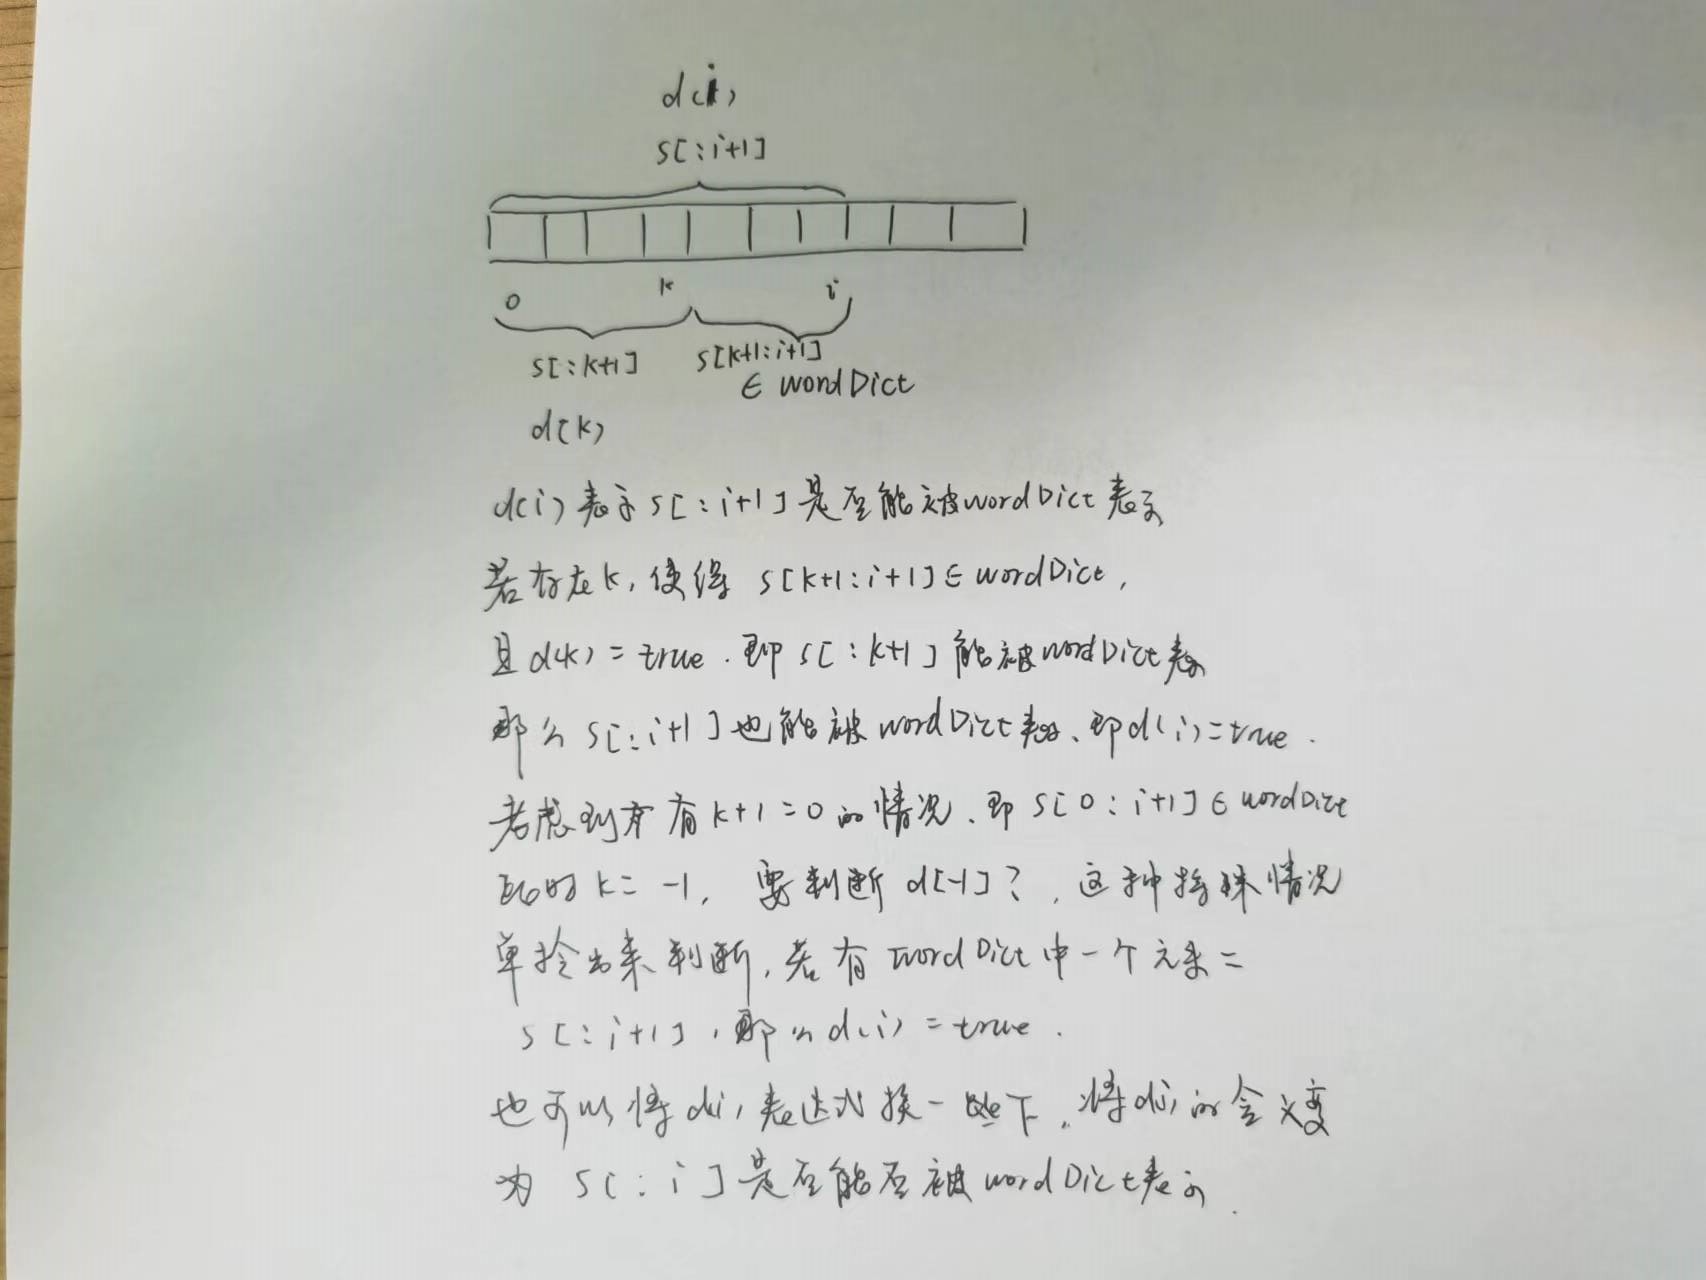 d(i)
s[:i+1]
0 k i
s[:k+1] s[k+1:i+1]
∈ wordDict
d(k)
d(i)表示s[:i+1]是否能被wordDict表示
若存在k,使得 s[k+1:i+1]∈wordDict,
且d(k)=true.即s[:k+1]能被wordDict表示
那么s[:i+1]也能被wordDict表示、即d(i)=true.
考虑到有k+1=0的情况、即s[0:i+1]∈wordDict
此时k=-1, 要判断d[-1]?,这种特殊情况
单拎出来判断,若有wordDict中一个元素=
s[:i+1],那么d(i)=true.
也可以将d(i)表达式换一下,将d(i)的含义变
为 s[:i]是否能否被wordDict表示.